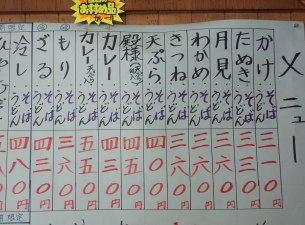 メニュー
かけ そば うどん 三一〇円
たぬき そば うどん 三六〇円
月見 そば うどん 三六〇円
わかめ そば うどん 三六〇円
きつね そば うどん 三六〇円
天ぷら そば うどん 四〇〇円
殿様 そば うどん 四五〇円
カレー そば うどん 四五〇円
カレー 天ぷら そば うどん 五五〇円
もり そば うどん 三六〇円
ざる そば うどん 四三〇円
冷し そば うどん 四八〇円
おすすめ品
限定